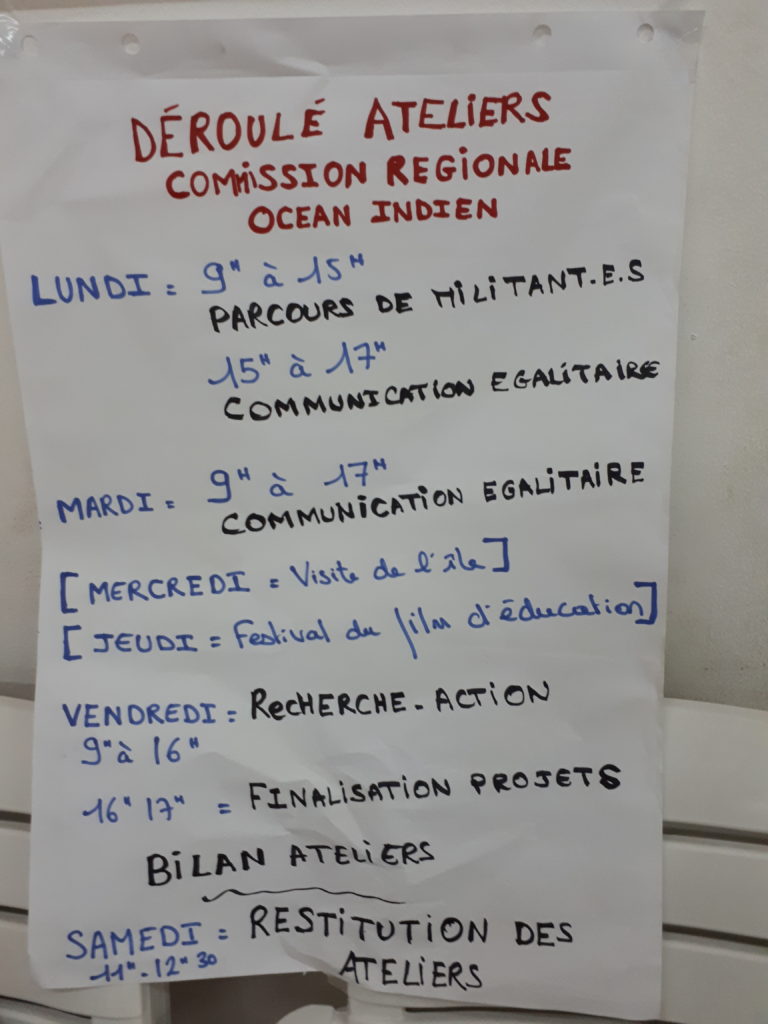 DÉROULÉ ATELiERS
COMMISSION REGIONALE
OCEAN INDIEN
LUNDI = 9H à 15H
PARCOURS DE MiLiTANT.E.S
15H à 17H
COMMUNICATiON EGALiTAIRE
MARDI = 9H à 17H
COMMUNiCATiON EGALITAiRE
[MERCREDI = Visite de l'île]
[JEUDI = Festival du film d'éducation]
VENDREDI = RecHERCHE-ACTiON
9H à 16H
16H 17H = FiNALiSATiON PROJETS
BiLAN ATELiERS
SAMEDI = RESTiTUTiON DES
11H-12H30 ATELiERS